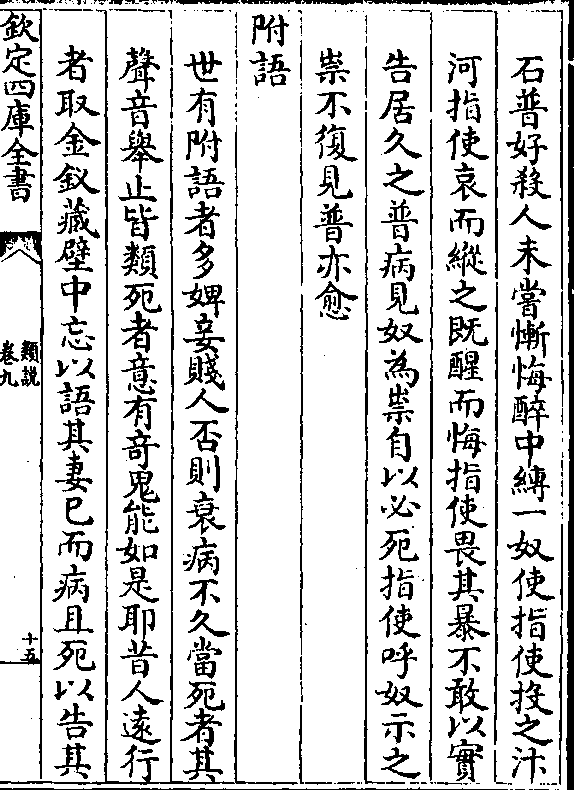 石普好殺人未嘗慚悔醉中縛一奴使指使投之汴
河指使哀而縱之既醒而悔指使畏其暴不敢以實
告居久之普病見奴為祟自以必死指使呼奴示之
祟不復見普亦愈
附語
世有附語者多婢妾賤人否則衰病不久當死者其
聲音舉止皆類死者意有奇鬼能如是耶昔人遠行
者取金釵藏壁中忘以語其妻已而病且死以告其
欽定四庫全書
類說
卷九
十五